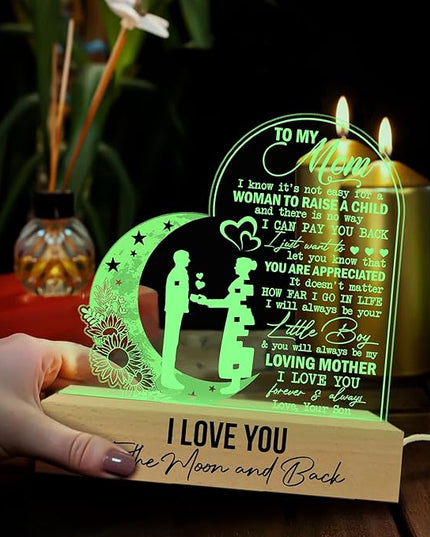 TO MY
Mom
I know it's not easy for a
WOMAN TO RAISE A CHILD
and there is no way
I CAN PAY YOU BACK
I just want to
let you know that
YOU ARE APPRECIATED
It doesn't matter
HOW FAR I GO IN LIFE
I will always be your
Little Boy
& you will always be my
LOVING MOTHER
I LOVE YOU
forever & always
Love, Your Son
I LOVE YOU
To The Moon and Back